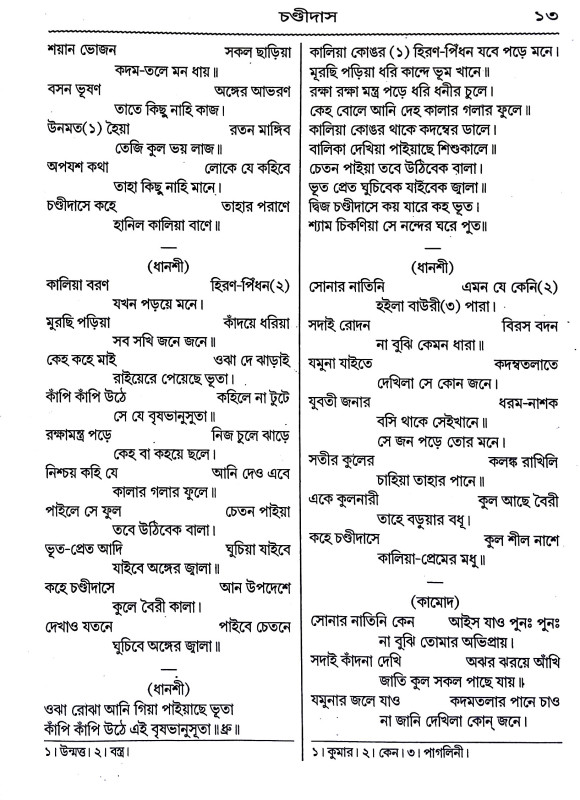 চণ্ডীদাস ১৩
শয়ান ভোজন সকল ছাড়িয়া
কদম-তলে মন ধায়॥
বসন ভূষণ অঙ্গের আভরণ
তাতে কিছু নাহি কাজ।
উনমত(১) হৈয়া রতন মাঙ্গিব
তেজি কুল ভয় লাজ॥
অপযশ কথা লোকে যে কহিবে
তাহা কিছু নাহি মানে।
চণ্ডীদাসে কহে তাহার পরাণে
হানিল কালিয়া বাণে॥
—
(ধানশী)
কালিয়া বরণ হিরণ-পিঁধন(২)
যখন পড়য়ে মনে।
মুরছি পড়িয়া কাঁদয়ে ধরিয়া
সব সখি জনে জনে॥
কেহ কহে মাই ওঝা দে ঝাড়াই
রাইয়েরে পেয়েছে ভূতা।
কাঁপি কাঁপি উঠে কহিলে না টুটে
সে যে বৃষভানুসুতা॥
রক্ষামন্ত্র পড়ে নিজ চুলে ঝাড়ে
কেহ বা কহয়ে ছলে।
নিশ্চয় কহি যে আনি দেও এবে
কালার গলার ফুলে॥
পাইলে সে ফুল চেতন পাইয়া
তবে উঠিবেক বালা।
ভূত-প্রেত আদি ঘুচিয়া যাইবে
যাইবে অঙ্গের জ্বালা॥
কহে চণ্ডীদাসে আন উপদেশে
কুলে বৈরী কালা।
দেখাও যতনে পাইবে চেতনে
ঘুচিবে অঙ্গের জ্বালা॥
—
(ধানশী)
ওঝা রোঝা আনি গিয়া পাইয়াছে ভূতা
কাঁপি কাঁপি উঠে এই বৃষভানুসুতা॥ধ্রু॥
১। উন্মত্ত। ২। বস্ত্র।
কালিয়া কোঙর (১) হিরণ-পিঁধন যবে পড়ে মনে।
মূরছি পড়িয়া ধরি কান্দে ভূম খানে॥
রক্ষা রক্ষা মন্ত্র পড়ে ধরি ধনীর চুলে।
কেহ বোলে আনি দেহ কালার গলার ফুলে॥
কালিয়া কোঙর থাকে কদম্বের ডালে।
বালিকা দেখিয়া পাইয়াছে শিশুকালে॥
চেতন পাইয়া তবে উঠিবেক বালা।
ভূত প্রেত ঘুচিবেক যাইবেক জ্বালা॥
দ্বিজ চণ্ডীদাসে কয় যারে কহ ভূত।
শ্যাম চিকণিয়া সে নন্দের ঘরে পূত॥
—
(ধানশী)
সোনার নাতিনি এমন যে কেনি(২)
হইলা বাউরী(৩) পারা।
সদাই রোদন বিরস বদন
না বুঝি কেমন ধারা॥
যমুনা যাইতে কদম্বতলাতে
দেখিলা সে কোন জনে।
যুবতী জনার ধরম-নাশক
বসি থাকে সেইখানে॥
সে জন পড়ে তোর মনে।
সতীর কুলের কলঙ্ক রাখিলি
চাহিয়া তাহার পানে॥
একে কুলনারী কুল আছে বৈরী
তাহে বড়ুয়ার বধূ।
কহে চণ্ডীদাসে কুল শীল নাশে
কালিয়া-প্রেমের মধু॥
—
(কামোদ)
সোনার নাতিনি কেন আইস যাও পুনঃ পুনঃ
না বুঝি তোমার অভিপ্রায়।
সদাই কাঁদনা দেখি অঝর ঝরয়ে আঁখি
জাতি কুল সকল পাছে যায়॥
যমুনার জলে যাও কদমতলার পানে চাও
না জানি দেখিলা কোন্ জনে।
১। কুমার। ২। কেন। ৩। পাগলিনী।